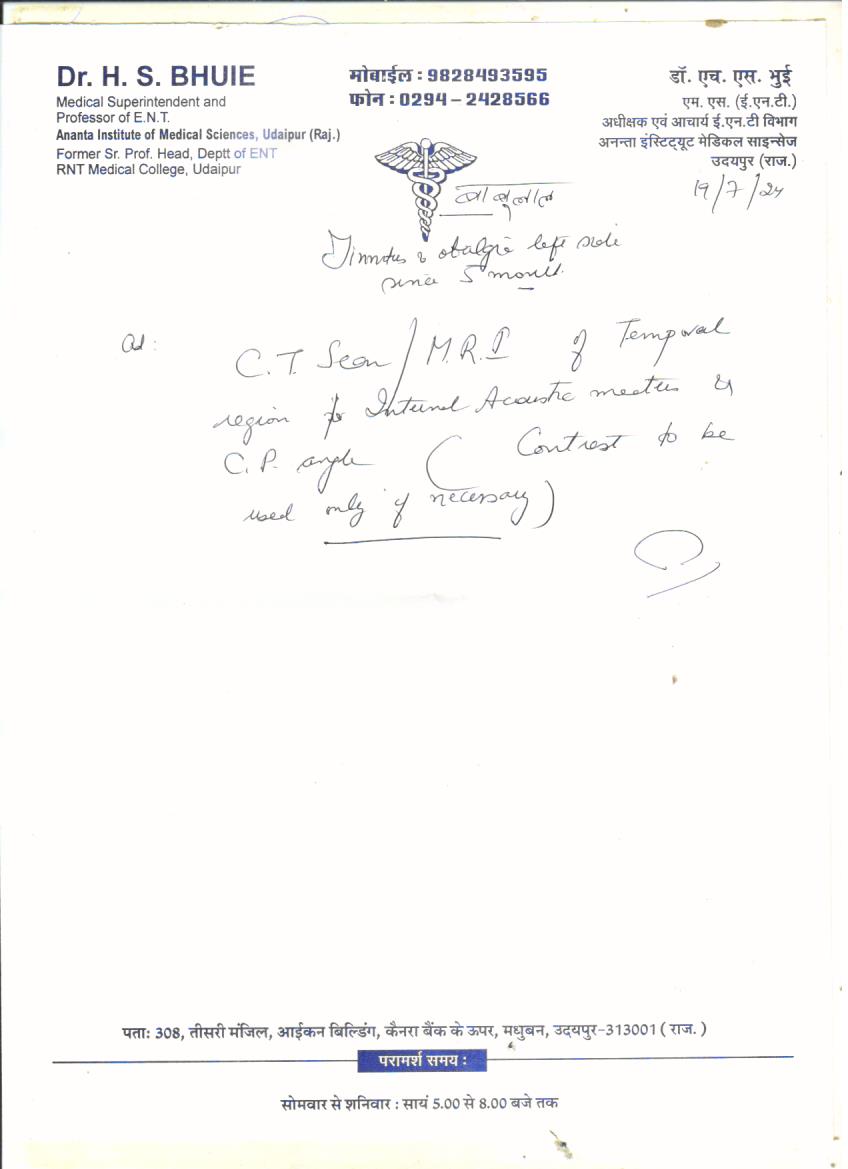 Dr. H. S. BHUIE
Medical Superintendent and
Professor of E.N.T.
Ananta Institute of Medical Sciences, Udaipur (Raj.)
Former Sr. Prof. Head, Deptt of ENT
RNT Medical College, Udaipur
मोबाईल : 9828493595
फोन : 0294 – 2428566
डॉ. एच. एस. भुई
एम. एस. (ई.एन.टी.)
अधीक्षक एवं आचार्य ई.एन.टी विभाग
अनन्ता इंस्टिट्यूट मेडिकल साइन्सेज
उदयपुर (राज.)
19/7/24
बाबुलाल
Tinnitus & otalgia left side
since 5 month.
Ad :
C.T. Scan / M.R.I of Temporal
region for Internal Acoustic meatus &
C.P. angle ( Contrast to be
used only if necessary )
पताः 308, तीसरी मंजिल, आईकन बिल्डिंग, कैनरा बैंक के ऊपर, मधुबन, उदयपुर-313001 ( राज. )
परामर्श समय :
सोमवार से शनिवार : सायं 5.00 से 8.00 बजे तक